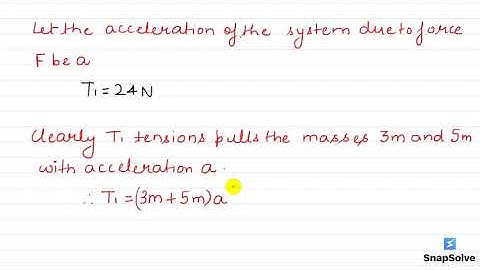 Let the acceleration of the system due to force
F be a
T₁ = 24 N
Clearly T₁ tensions pulls the masses 3m and 5m
with acceleration a.
∴ T₁ = (3m + 5m)a
SnapSolve